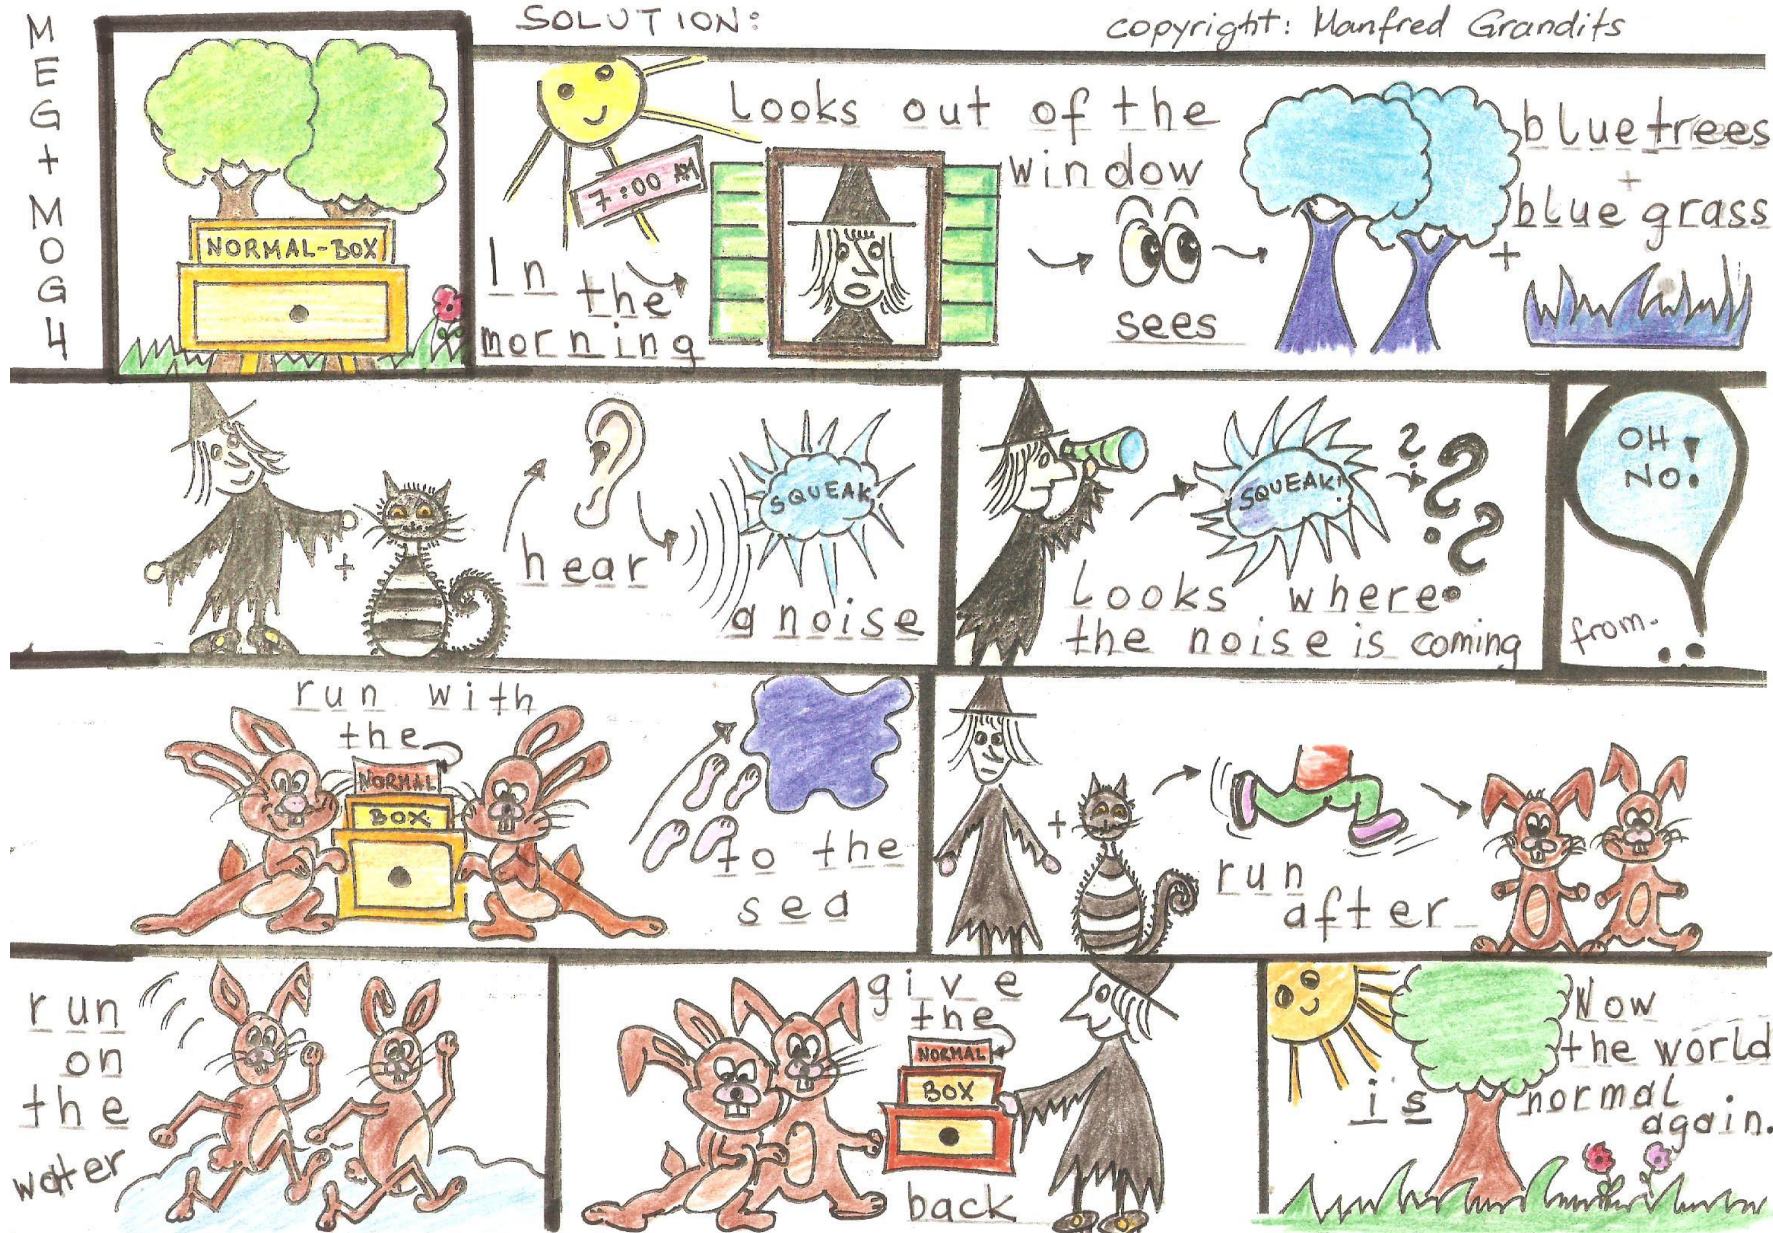 MEG + MOG 4
SOLUTION:
copyright: Manfred Grandits
NORMAL-BOX
7:00 AM
In
the
morning
Looks out of the
window
sees
blue trees
+
blue grass
+
+
hear
SQUEAK!
a noise
SQUEAK!
? ? ?
Looks where
the noise is coming
from.
OH
NO!
run with
the
NORMAL
BOX
to the
sea
+
run
after
run
on
the
water
give
the
NORMAL
BOX
back
Now
the world
is normal
again.